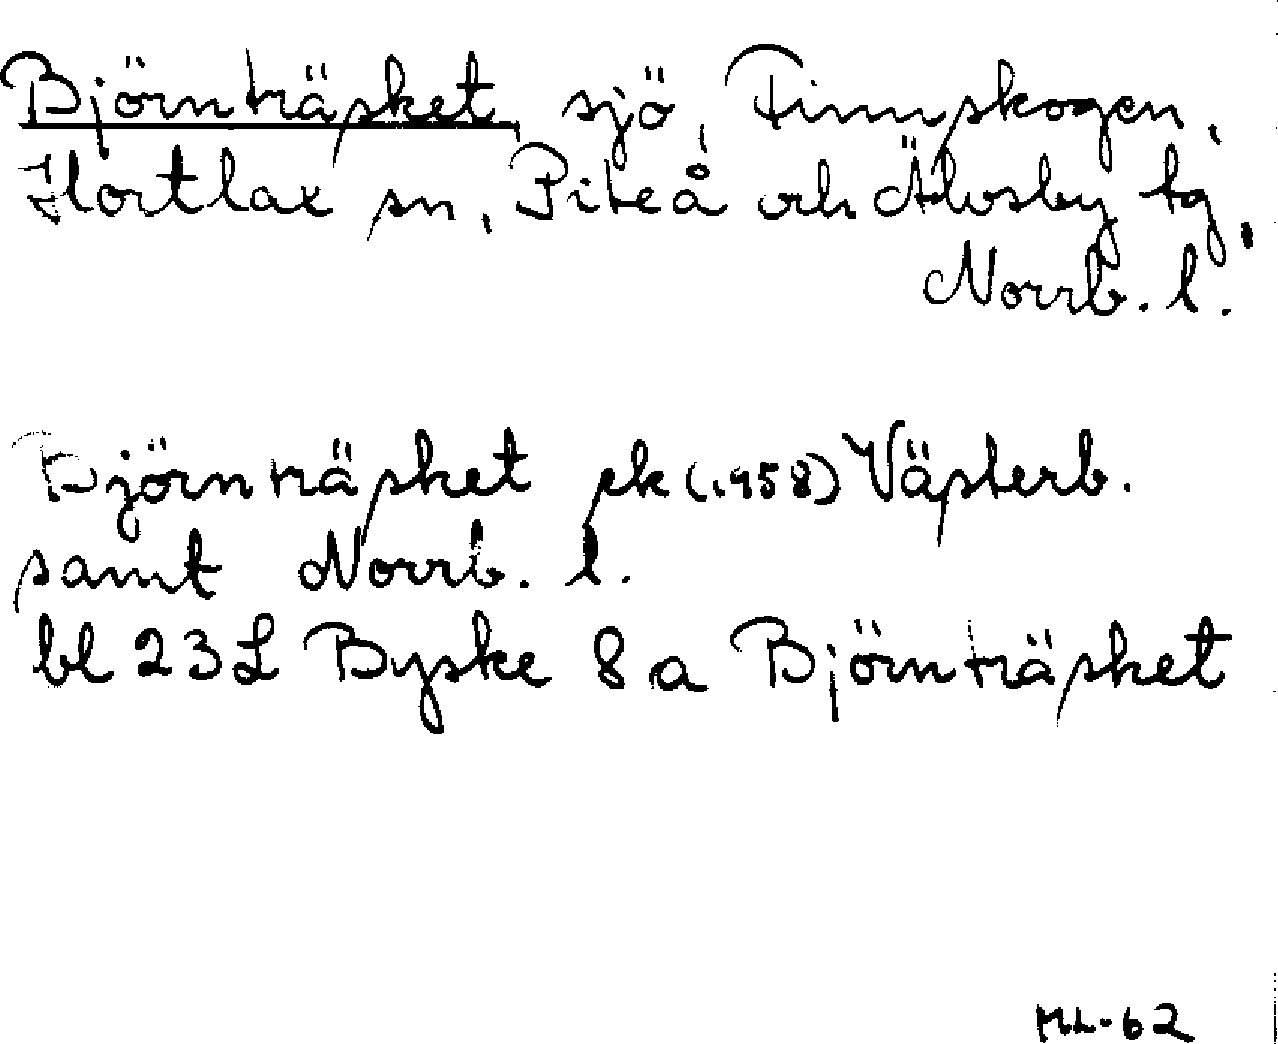 Björnträsket, sjö, Finnskogen,
Hortlax sn, Piteå och Älvsby tg,
Norrb. l.
Björnträsket ek (1958) Västerb.
samt Norrb. l.
bl 23L Byske 8a Björnträsket
ML-62